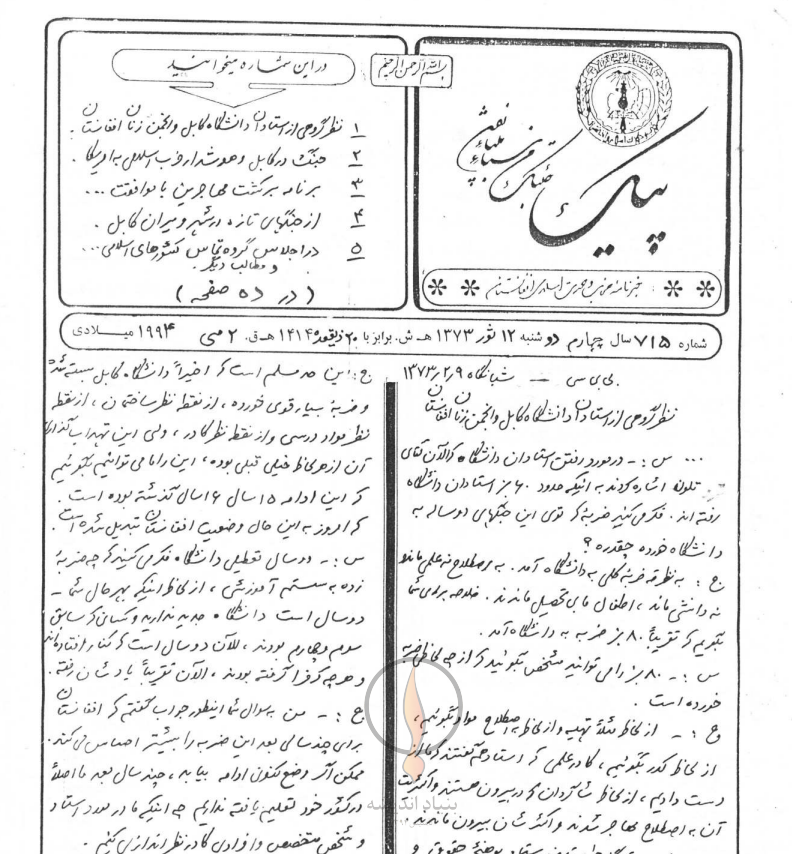 بسم الله الرحمن الرحیم
پیک
خبرنامه حزب وحدت اسلامی افغانستان
در این شماره میخوانید
۱ نظر گروهی از استادان دانشگاه کابل و انجمن زنان افغانستان.
۲ جنگ در کابل و هوشدار حزب اسلامی به امریکا.
۳ برنامه برگشت مهاجرین با موافقت ...
۴ از جنگهای تازه در شهر ویران کابل.
۵ در اجلاس گروه تماس کشورهای اسلامی ...
و مطالب دیگر.
(در ده صفحه)
شماره ۷۱۵ سال چهارم دوشنبه ۱۲ ثور ۱۳۷۳ هـ ش. برابر با ۲۰ ذیقعده ۱۴۱۴ هـ ق. ۲ می ۱۹۹۴ میلادی
بی بی سی — شبانگاه ۱۳۷۳/۲/۹
نظر گروهی از استادان دانشگاه کابل و انجمن زنان افغانستان
... س: - در مورد رفتن استادان دانشگاه که الآن آقای
اشاره کردند به اینکه حدود ۶۰٪ استادان دانشگاه
رفته اند. فکر می کنید ضربهٔ که توی این جنگهای دو ساله به
دانشگاه خورده چقدره؟
ج: به نظر مه ضربهٔ کلی به دانشگاه آمد. به اصطلاح نه علمی ماند و
نه دانشی ماند، اطفال ما بی تحصیل ماندند. خلاصه برای شما
بگویم که تقریباً ۸۰٪ ضربه به دانشگاه آمد.
س: - ۸۰٪ را می توانید مشخص بگوئید که از چه لحاظی ضربه
خورده است.
ج: - از لحاظ مثلاً تهیه و از لحاظ به اصطلاح مواد بگوئیم،
از لحاظ کدر بگوئیم، کادر علمی که استاد هم گفتند که ما از
دست دادیم، از لحاظ شاگردان که در بیرون هستند و اکثریت
آن به اصطلاح مهاجر شدند و اکثرشان بیرون ماندند.
ج: این حد مسلم است که اخیراً دانشگاه کابل بسته شد
و ضربهٔ بسیار قوی خورده، از نقطه نظر ساختمان، از نقطه
نظر مواد درسی و از نقطه نظر کادر، ولی این تهداب گذاری
آن از هر لحاظ خیلی قبلی بوده، این را ما می توانیم بگوئیم
که این ادامه ۱۵ سال ۱۶ سال گذشته بوده است.
که امروز به این حال وضعیت افغانستان تبدیل شده است.
س: - دو سال تعطیلی دانشگاه فکر می کنید که چه ضربهٔ
زده به سیستم آموزشی، از لحاظ اینکه بهر حال شما -
دو سال است دانشگاه جدید ندارید و کسانی که سابق
سوم و چهارم بودند، الآن دو سال است که کنار افتاده اند
و هر چه که فرا گرفته بودند، الآن تقریباً یادشان رفته.
ج: - من به سوال شما اینطور جواب گفتم که افغانستان
برای چند سالی بعد این ضربه را بیشتر احساس می کند.
ممکن اگر وضع کنون ادامه بیابد، چند سال بعد ما اصلاً
در کشور خود تعلیم یافته نداریم چه اینکه ما در مورد استاد
و شخص متخصص و افرادی کادر نظر اندازی کنیم.
بنیاد اندیشه